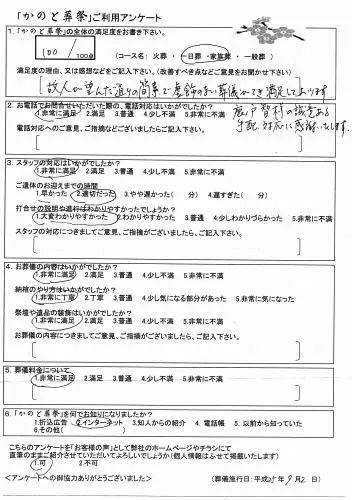 「かのと葬祭」ご利用アンケート
1.「かのと葬祭」の全体の満足度をお書き下さい。
100/100点 (コース名: 火葬 ・ 一日葬 ・家族葬 ・ 一般葬 )
満足度の理由、又は感想などをご記入下さい。(改善すべき点などご意見をお聞かせ下さい)
故人が望んだ通りの簡単で虚飾のない葬儀ができ満足しております
2. お電話でお問合せいただいた際の、電話対応はいかがでしたか?
1.非常に満足 2.満足 3.普通 4.少し不満 5.非常に不満
電話対応へのご意見、ご指摘などございましたらご記入下さい。
手配、対応に感謝いたします。
3. スタッフの対応はいかがでしたか?
1.非常に満足 2.満足 3.普通 4.少し不満 5.非常に不満
ご遺体のお迎えまでの時間
1.早かった 2.適切だった 3.やや遅かった( 分) 4.遅すぎた( 分)
打合せの説明や進行はわかりやすかったでしょうか?
1.大変わかりやすかった 2.わかりやすかった 3.普通 4.少しわかりづらかった 5.非常に不満
スタッフの対応につきましてご意見、ご指摘がございましたら、ご記入下さい。
4. お葬儀の内容はいかがでしたか?
1.非常に満足 2.満足 3.普通 4.少し不満 5.非常に不満
納棺のやり方はいかがでしたか?
1.非常に丁寧 2.丁寧 3.普通 4.少し気になる部分があった 5.非常に気になった
祭壇や遺品の装飾はいかがでしたか?
1.非常に満足 2.満足 3.普通 4.少し不満 5.非常に不満
お葬儀の内容につきましてご意見、ご指摘がございましたら、ご記入下さい。
5. 葬儀料金について
1.非常に満足 2.満足 3.普通 4.少し不満 5.非常に不満
6.「かのと葬祭」を何でお知りになりましたか?
1.折込広告 2.インターネット 3.知人からの紹介 4.電話帳 5.以前から知っていた
6.その他( )
こちらのアンケートを「お客様の声」として弊社のホームページやチラシにて
直筆のままご紹介させていただいてよろしいでしょうか(個人情報はふせて掲載いたします)
1.可 2.不可
<アンケートへの御協力ありがとうございました> (葬儀施行日:平成25年9月2日)